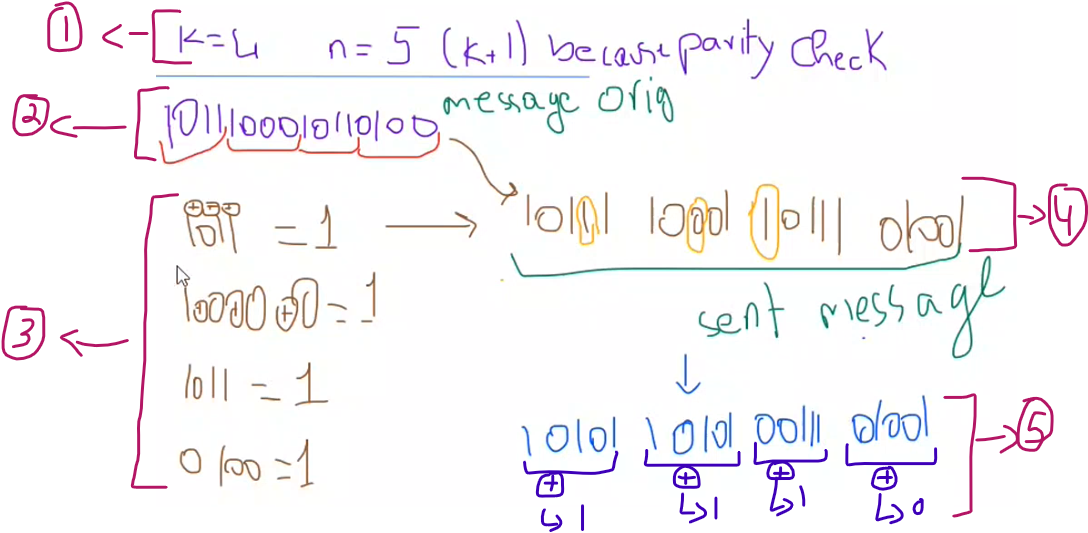 1 <- [ k=4 n=5 (k+1) because parity check
2 <- [ 1011100010110100 message orig
3 <- [ 1⊕0⊕1⊕1 = 1 → 10111 10001 10111 01001 ] -> 4
1⊕0⊕0⊕0 = 1
sent message
1011 = 1
↓
0100 = 1
10101 10101 00111 01001 ] -> 5
⊕ ⊕ ⊕ ⊕
↳ 1 ↳ 1 ↳ 1 ↳ 0